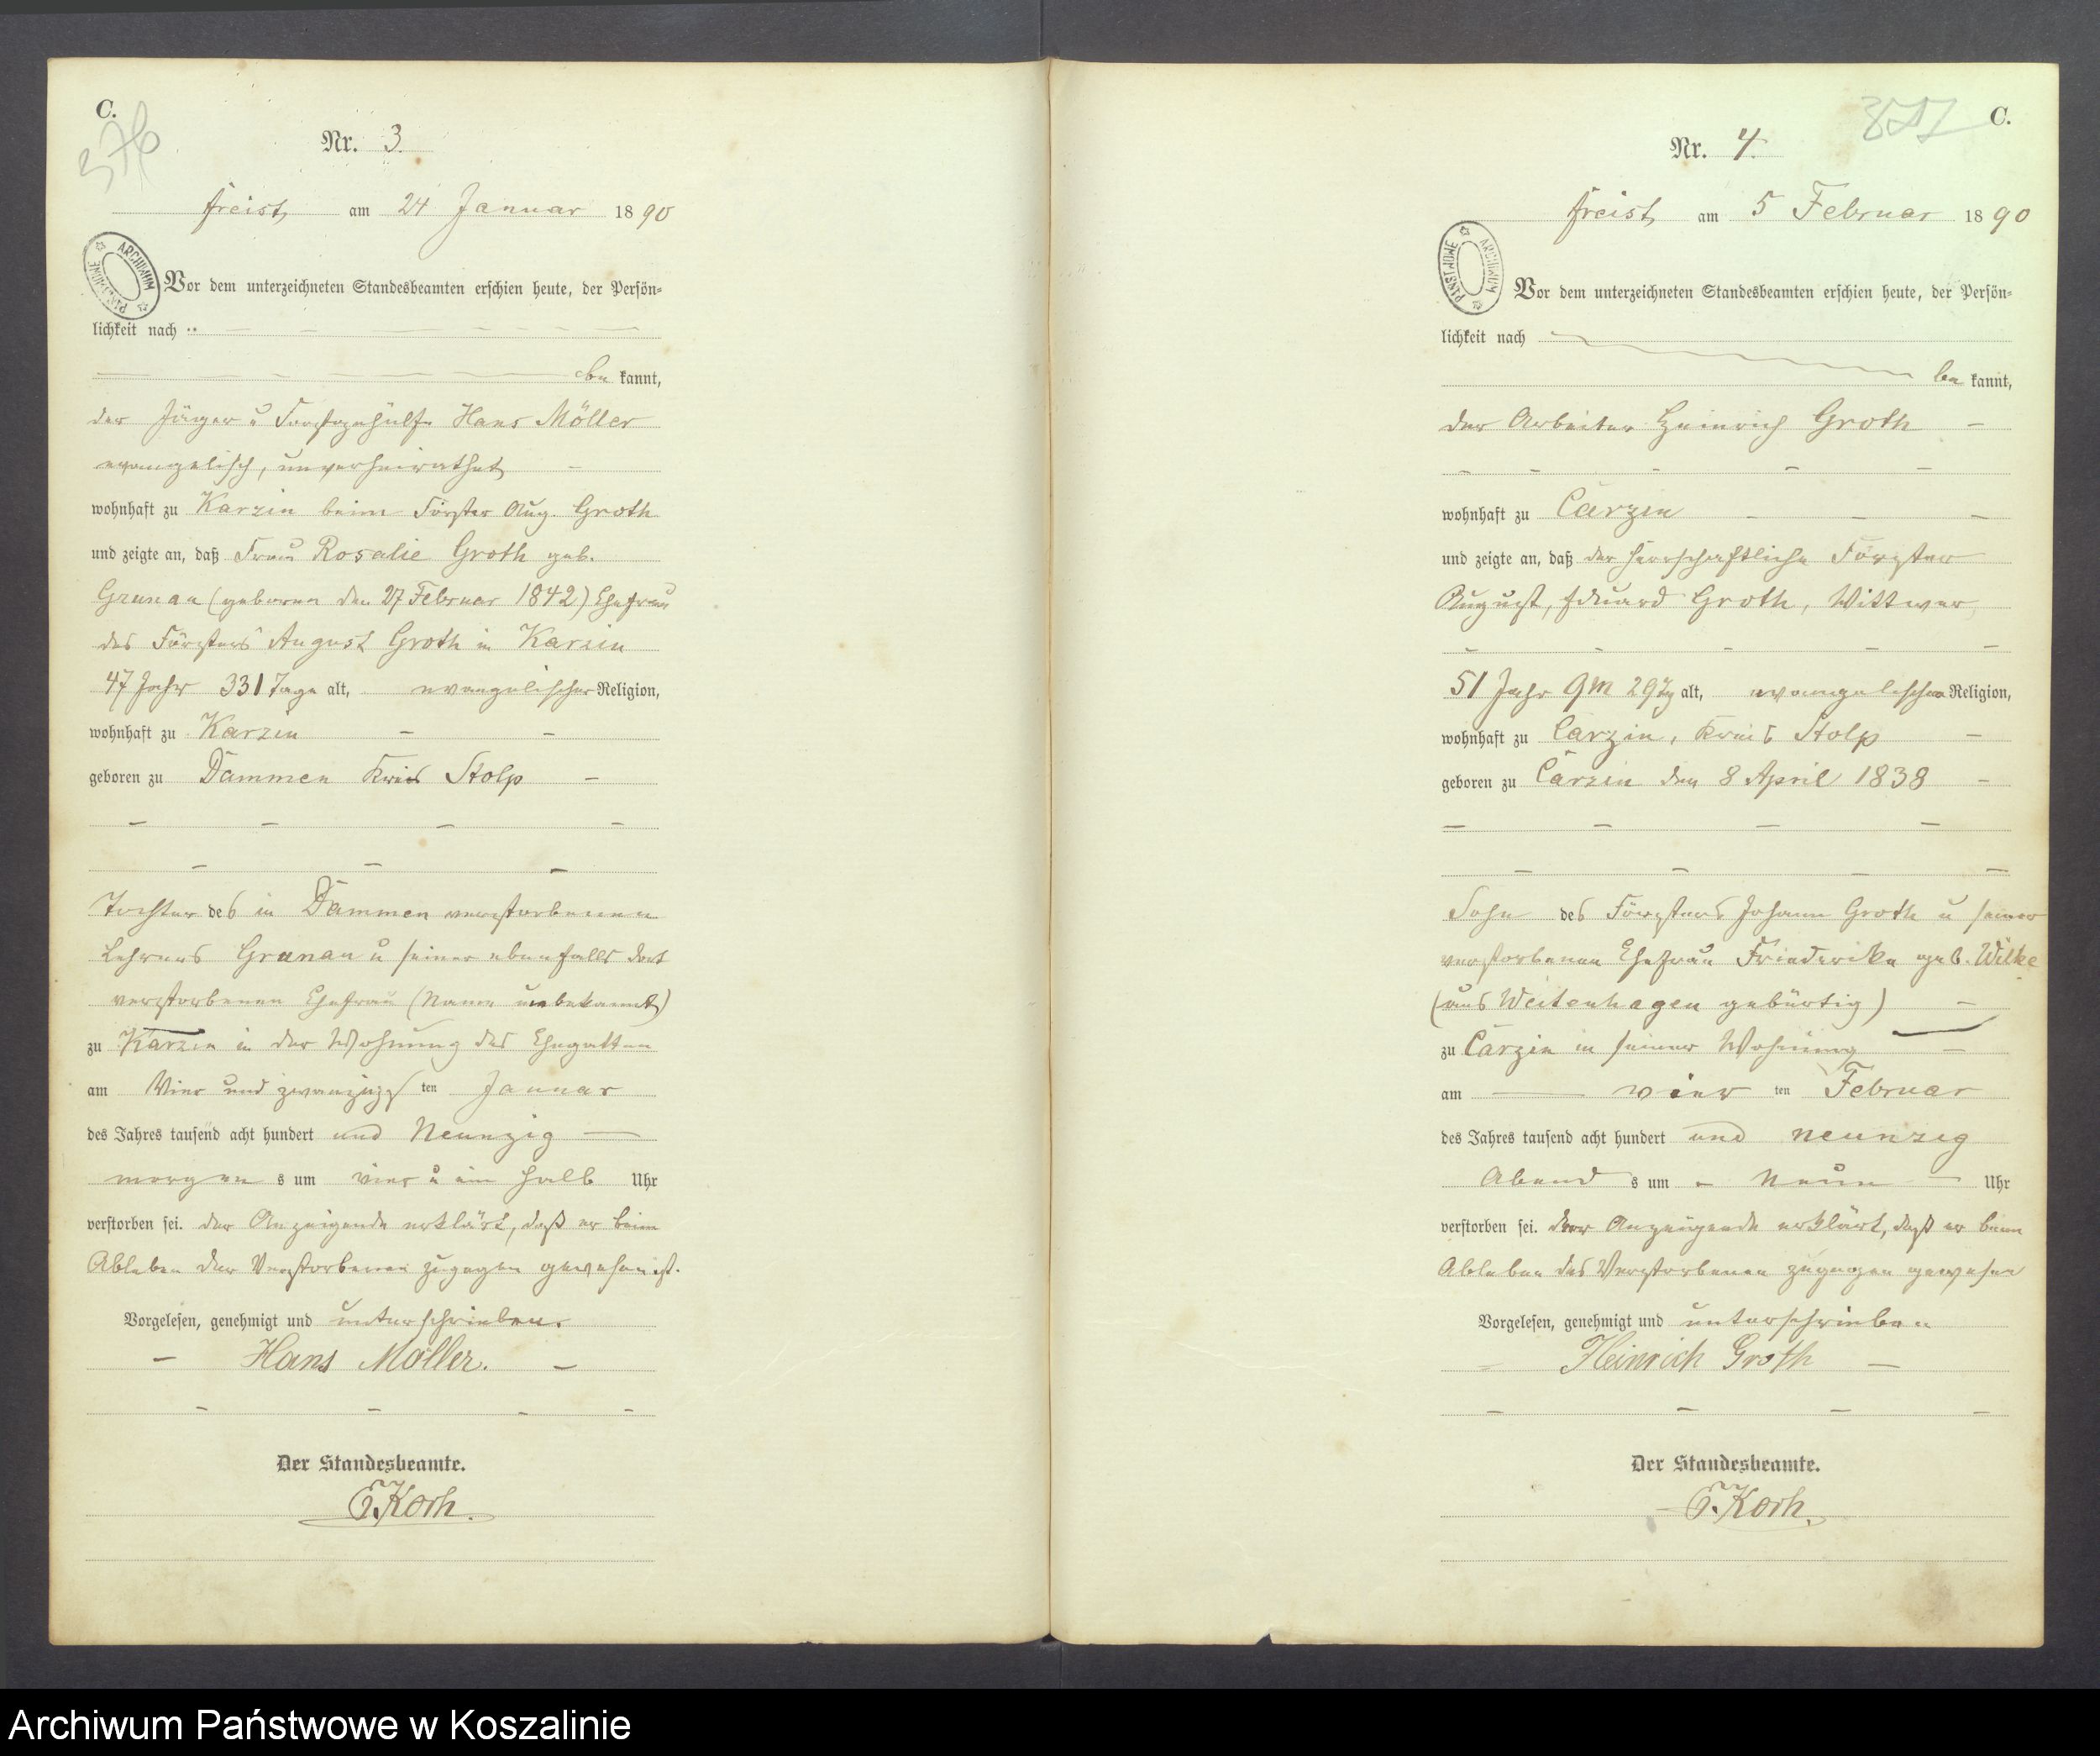 C.
376
Nr. 3.
Freist, am 24 Januar 1890
ARCHIWUM PAŃSTWOWE
Vor dem unterzeichneten Standesbeamten erschien heute, der Persön-
lichkeit nach
bekannt,
der Jäger u Forstgehülfe Hans Möller
evangelisch, unverheirathet
wohnhaft zu Karzin beim Förster Aug. Groth
und zeigte an, daß Frau Rosalie Groth geb.
Grunau (geboren den 27 Februar 1842) Ehefrau
des Försters August Groth in Karzin
47 Jahr 331 Tage alt, evangelischer Religion,
wohnhaft zu Karzin
geboren zu Dammen Kreis Stolp
Tochter des in Dammen verstorbenen
Lehrers Grunau u seiner ebenfalls dort
verstorbenen Ehefrau (Name unbekannt)
zu Karzin in der Wohnung des Ehegatten
am Vier und zwanzigs ten Januar
des Jahres tausend acht hundert und Neunzig
morgens um vier u ein halb Uhr
verstorben sei. der Anzeigende erklärt, daß er beim
Ableben der Verstorbenen zugegen gewesen ist.
Vorgelesen, genehmigt und unterschrieben.
Hans Möller.
Der Standesbeamte.
E. Koch.
C.
377
Nr. 4.
Freist, am 5 Februar 1890
ARCHIWUM PAŃSTWOWE
Vor dem unterzeichneten Standesbeamten erschien heute, der Persön-
lichkeit nach
bekannt,
der Arbeiter Heinrich Groth
wohnhaft zu Carzin
und zeigte an, daß der herrschaftliche Förster
August, Eduard Groth, Wittwer
51 Jahr 9M 29Tg alt, evangelischer Religion,
wohnhaft zu Carzin, Kreis Stolp
geboren zu Carzin den 8 April 1838
Sohn des Försters Johann Groth u seiner
verstorbenen Ehefrau Friederike geb. Wilke
(aus Weitenhagen gebürtig)
zu Carzin in seiner Wohnung
am vier ten Februar
des Jahres tausend acht hundert und neunzig
Abends um Neun Uhr
verstorben sei. der Anzeigende erklärt, daß er beim
Ableben des Verstorbenen zugegen gewesen
Vorgelesen, genehmigt und unterschrieben
Heinrich Groth
Der Standesbeamte.
E. Koch.
Archiwum Państwowe w Koszalinie